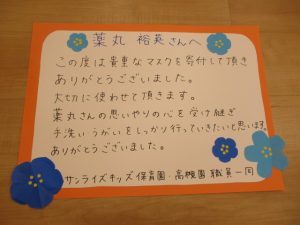 薬丸 裕英さんへ
この度は貴重なマスクを寄付して頂き
ありがとうございました。
大切に使わせて頂きます。
薬丸さんの思いやりの心を受け継ぎ
手洗い うがいをしっかり行っていきたいと思います。
ありがとうございました。
サンライズキッズ保育園・高槻園 職員一同